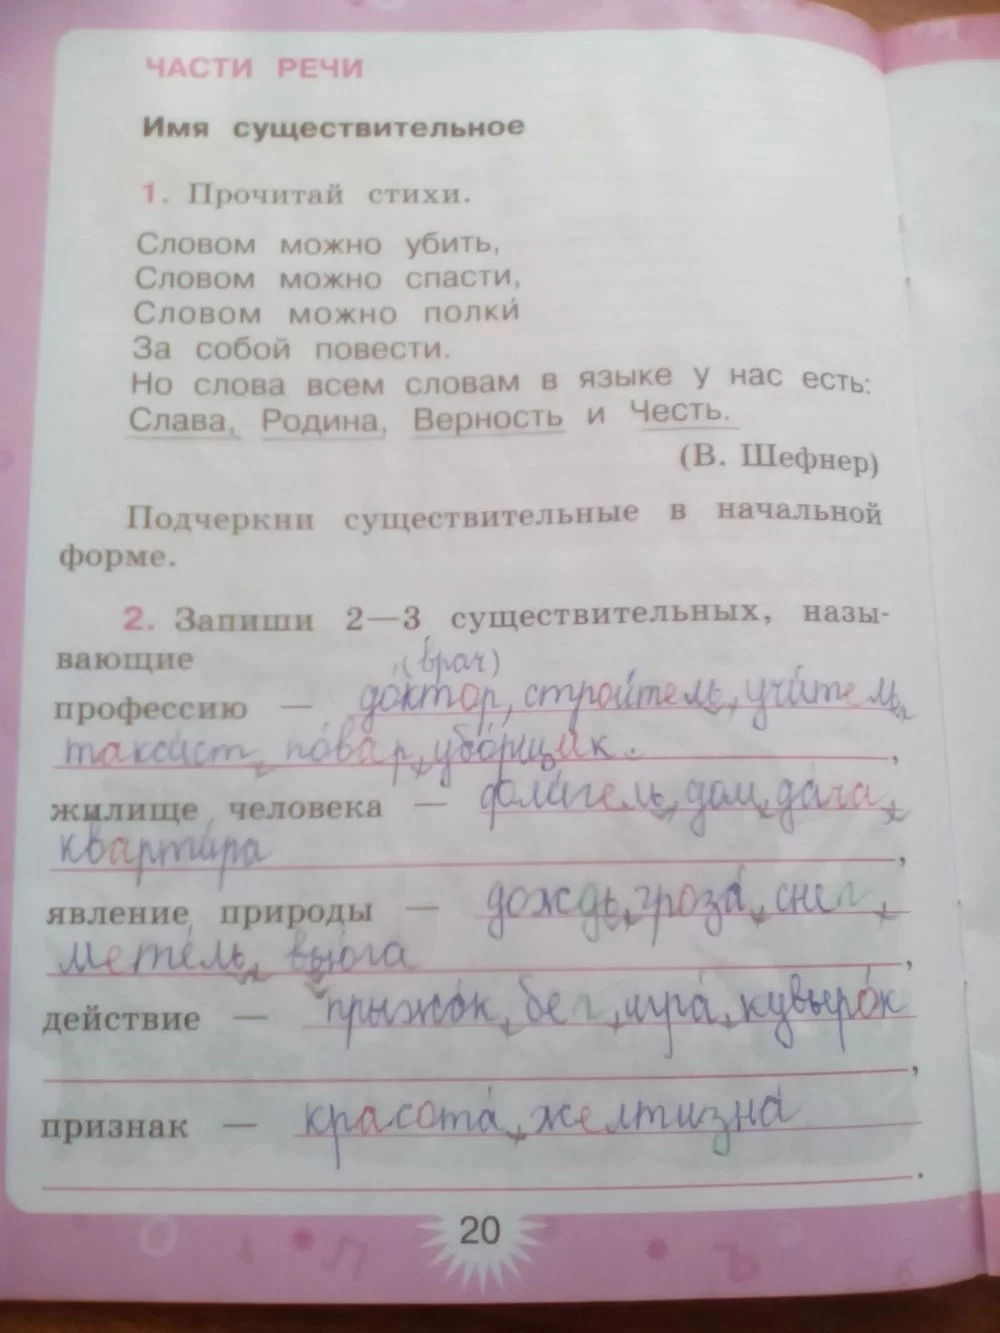 ЧАСТИ РЕЧИ
Имя существительное
1. Прочитай стихи.
Словом можно убить,
Словом можно спасти,
Словом можно полки́
За собой повести.
Но слова всем словам в языке у нас есть:
Слава, Родина, Верность и Честь.
(В. Шефнер)
Подчеркни существительные в начальной
форме.
2. Запиши 2—3 существительных, назы-
вающие
(врач)
профессию — до́ктор, строи́тель, учи́тель,
такси́ст, по́вар, убо́рщик.,
жилище человека — фли́гель, дом, да́ча,
кварти́ра,
явление природы — дождь, гроза́, снег,
мете́ль, вью́га,
действие — прыжо́к, бег, игра́, кувыро́к
,
признак — красота́, желтизна́
.
20